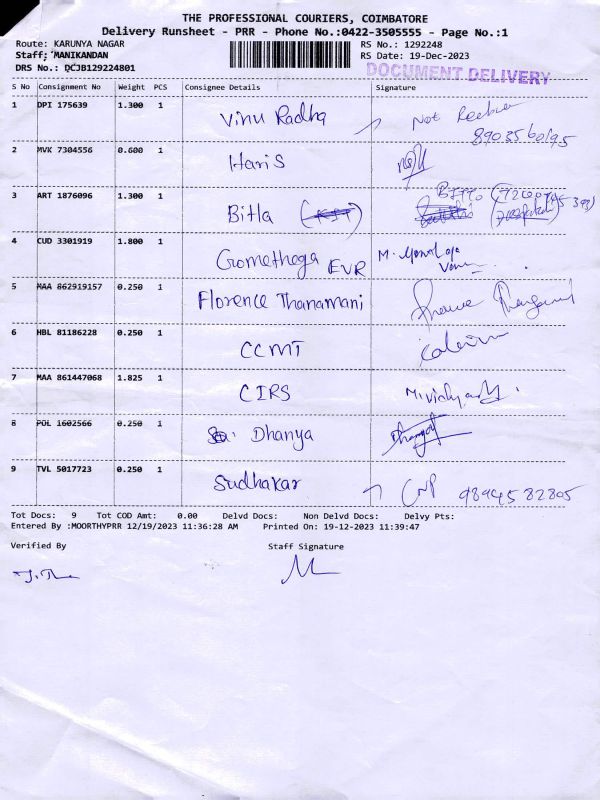 THE PROFESSIONAL COURIERS, COIMBATORE
Delivery Runsheet - PRR - Phone No.:0422-3505555 - Page No.:1
Route: KARUNYA NAGAR RS No.: 1292248
Staff: MANIKANDAN RS Date: 19-Dec-2023
DRS No.: DCJB129224801 DOCUMENT DELIVERY
S No Consignment No Weight PCS Consignee Details Signature
1 DPI 175639 1.300 1 Vinu Radha Not
8903560195
2 MVK 7304556 0.600 1 Haris
3 ART 1876096 1.300 1 Bitla
4 CUD 3301919 1.800 1 Gomethega EVR M.
5 MAA 862919157 0.250 1 Florence Thanamani
6 HBL 81186228 0.250 1 CCMT
7 MAA 861447068 1.825 1 CIRS
8 POL 1602566 0.250 1 Dhanya
9 TVL 5017723 0.250 1 Sudhakar 9894582805
Tot Docs: 9 Tot COD Amt: 0.00 Delvd Docs: Non Delvd Docs: Delvy Pts:
Entered By :MOORTHYPRR 12/19/2023 11:36:28 AM Printed On: 19-12-2023 11:39:47
Verified By Staff Signature